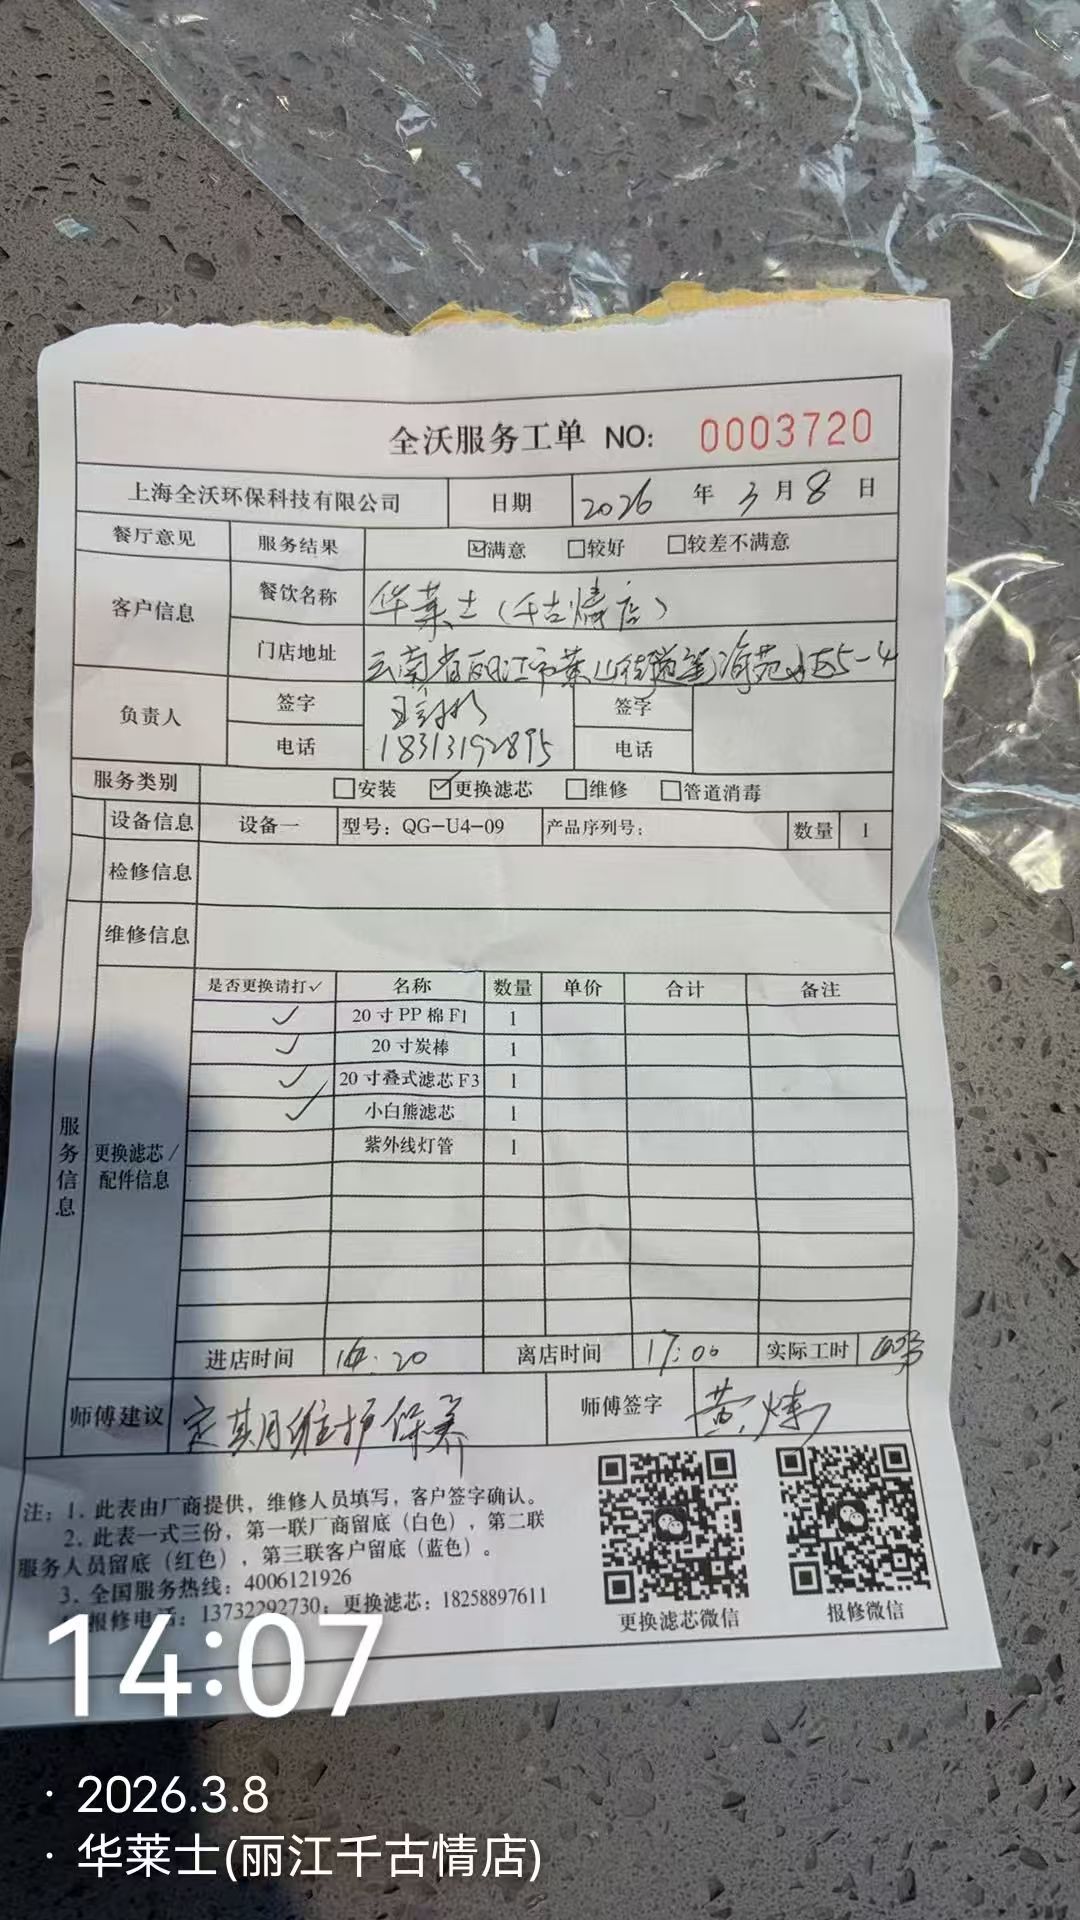 全沃服务工单 NO: 0003720
上海全沃环保科技有限公司 日期 2026 年 3 月 8 日
餐厅意见 服务结果 ☑满意 □较好 □较差不满意
客户信息 餐饮名称 华莱士(千古情店)
门店地址 云南省丽江市 5-4
负责人 签字 签字
电话 18313192895 电话
服务类别 □安装 ☑更换滤芯 □维修 □管道消毒
设备信息 设备一 型号: QG-U4-09 产品序列号: 数量 1
检修信息
维修信息
服务信息 更换滤芯/配件信息
是否更换请打✓ 名称 数量 单价 合计 备注
✓ 20寸PP棉F1 1
✓ 20寸炭棒 1
✓ 20寸叠式滤芯F3 1
✓ 小白熊滤芯 1
紫外线灯管 1
进店时间 14:20 离店时间 17:00 实际工时
师傅建议 定期维护保养 师傅签字 黄
注: 1. 此表由厂商提供, 维修人员填写, 客户签字确认。
2. 此表一式三份, 第一联厂商留底(白色), 第二联
服务人员留底(红色), 第三联客户留底(蓝色)。
3. 全国服务热线: 4006121926
报修电话: 13732292730; 更换滤芯: 18258897611
更换滤芯微信 报修微信
14:07
· 2026.3.8
· 华莱士(丽江千古情店)